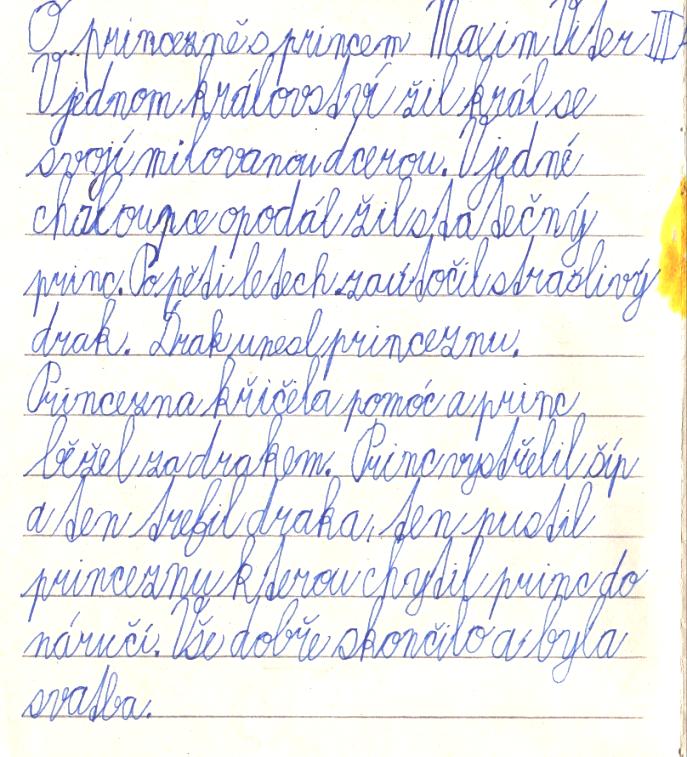 O princezně s princem Maxim Viter III
V jednom království žil král se
svojí milovanou dcerou. V jedné
chaloupce opodál žil statečný
princ. Po pěti letech zaútočil strašlivý
drak. Drak unesl princeznu.
Princezna křičela pomóc a princ
běžel za drakem. Princ vystřelil šíp
a ten trefil draka, ten pustil
princeznu kterou chytil princ do
náručí. Vše dobře skončilo a byla
svatba.